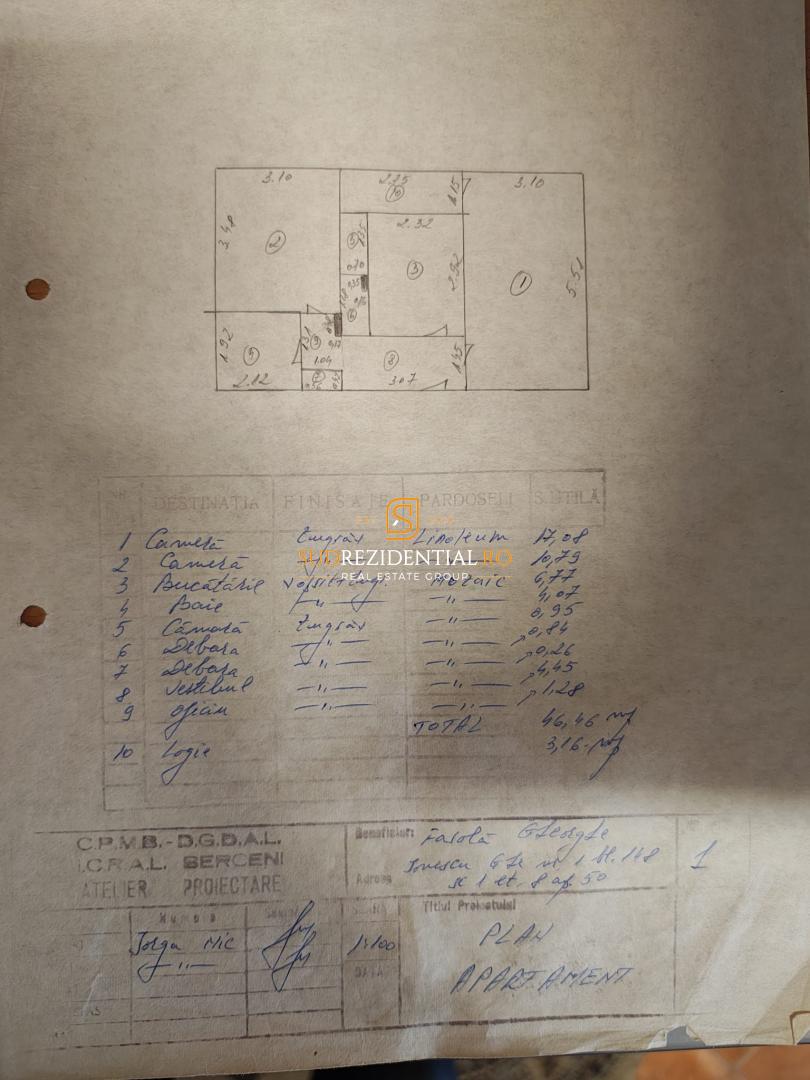 3.10
2.35
10
1.15
3.10
3.48
2
5
1.35
0.70
2.32
3
2.92
1
5.51
6
1.92
2.12
1.31
9
1.04
7
8
3.07
1.45
NR. DESTINAȚIA FINISAJE PARDOSELI S.UTILĂ
1 Cameră Zugrăv Linoleum 17,08
2 Cameră —"— 10,79
3 Bucătărie Mozaic 6,77
4 Baie —"— —"— 4,07
5 Cămară Zugrăv —"— 0,95
6 Debara —"— —"— 0,84
7 Debara —"— —"— 0,26
8 Vestibul —"— —"— 4,45
9 Oficiu —"— —"— 1,28
TOTAL 46,46 mp
10 Logie 3,16 mp
SUDREZIDENTIAL.RO
REAL ESTATE GROUP
C.P.M.B.-D.G.D.A.L.
I.C.R.A.L. BERCENI
ATELIER PROIECTARE
Beneficiar: Gheorghe
Adresa Ionescu Gh nr 1 bl. 148
sc 1 et. 8 ap. 50
1
Numele
Iorga Nic
—"—
1:100
DATA
Titlul Proiectului
PLAN
APARTAMENT